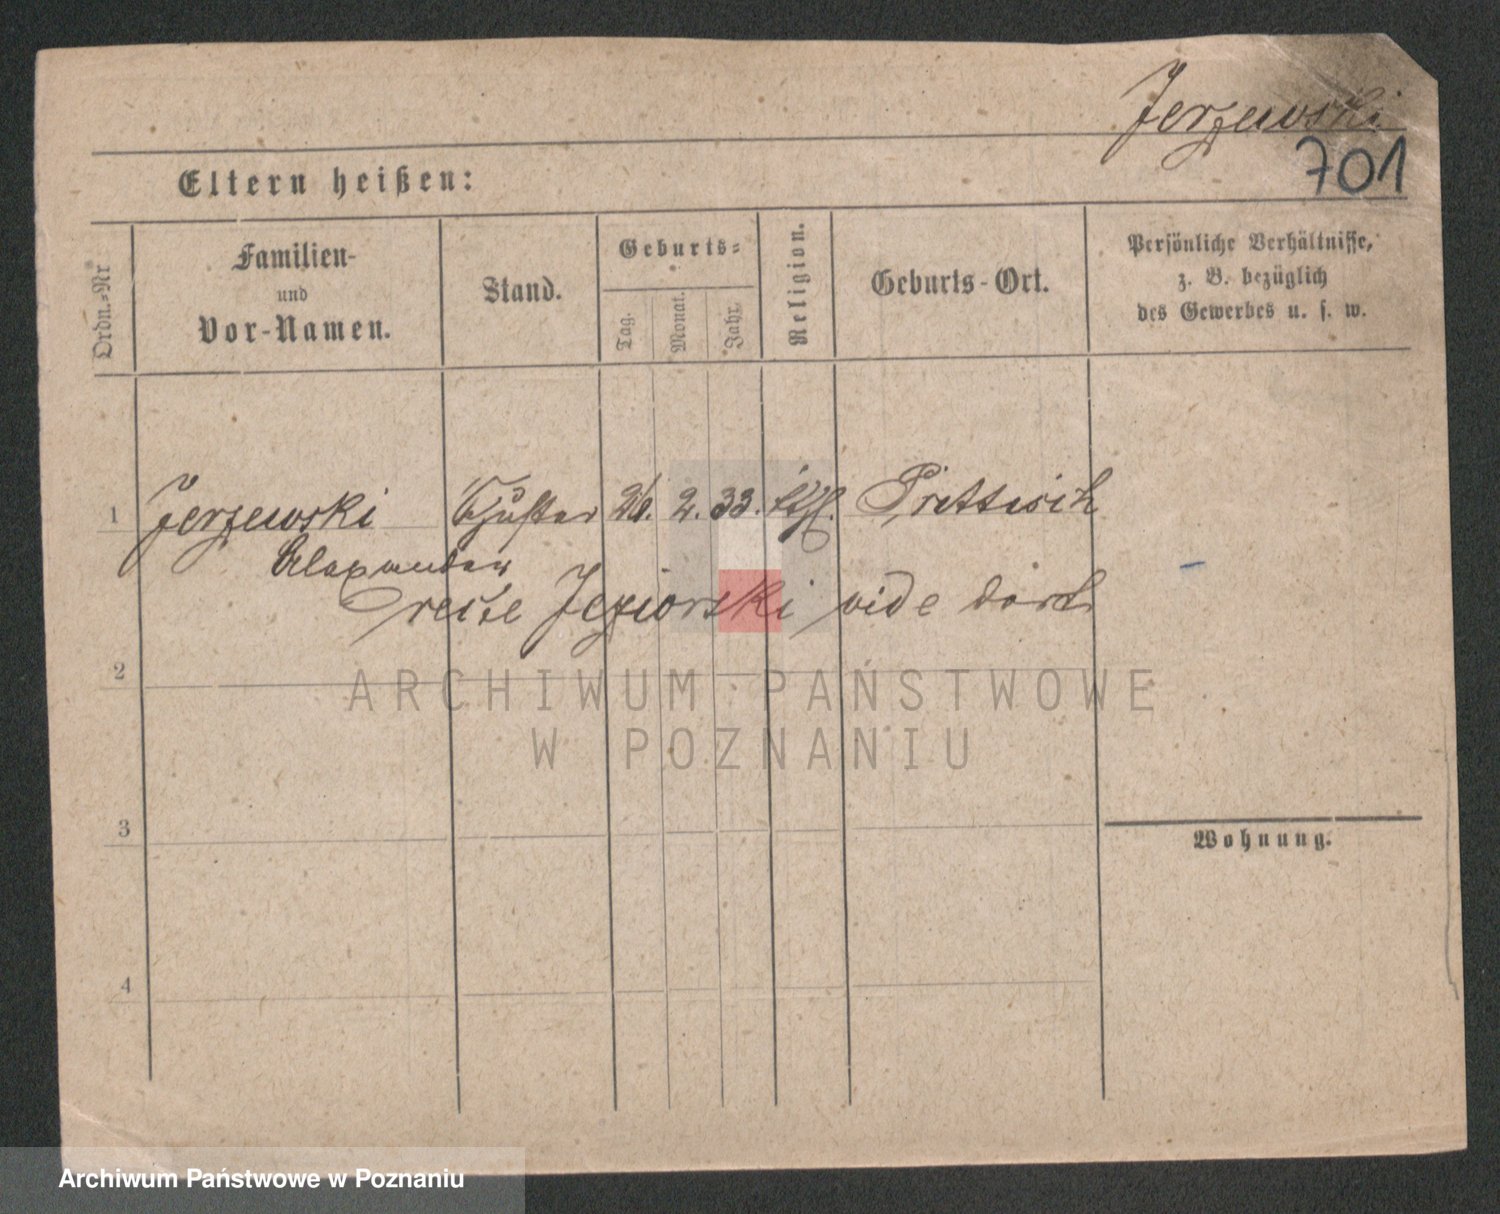 Jerzewski
701
Eltern heißen:
Ordn.-Nr
Familien-
und
Vor-Namen.
Stand.
Geburts-
Tag.
Monat.
Jahr.
Religion.
Geburts-Ort.
Persönliche Verhältnisse,
z. B. bezüglich
des Gewerbes u. s. w.
1 Jerzewski 2. 33.
Alexander
recte Jeziorski vide dort
2
ARCHIWUM PAŃSTWOWE
W POZNANIU
3
Wohnung.
4
Archiwum Państwowe w Poznaniu